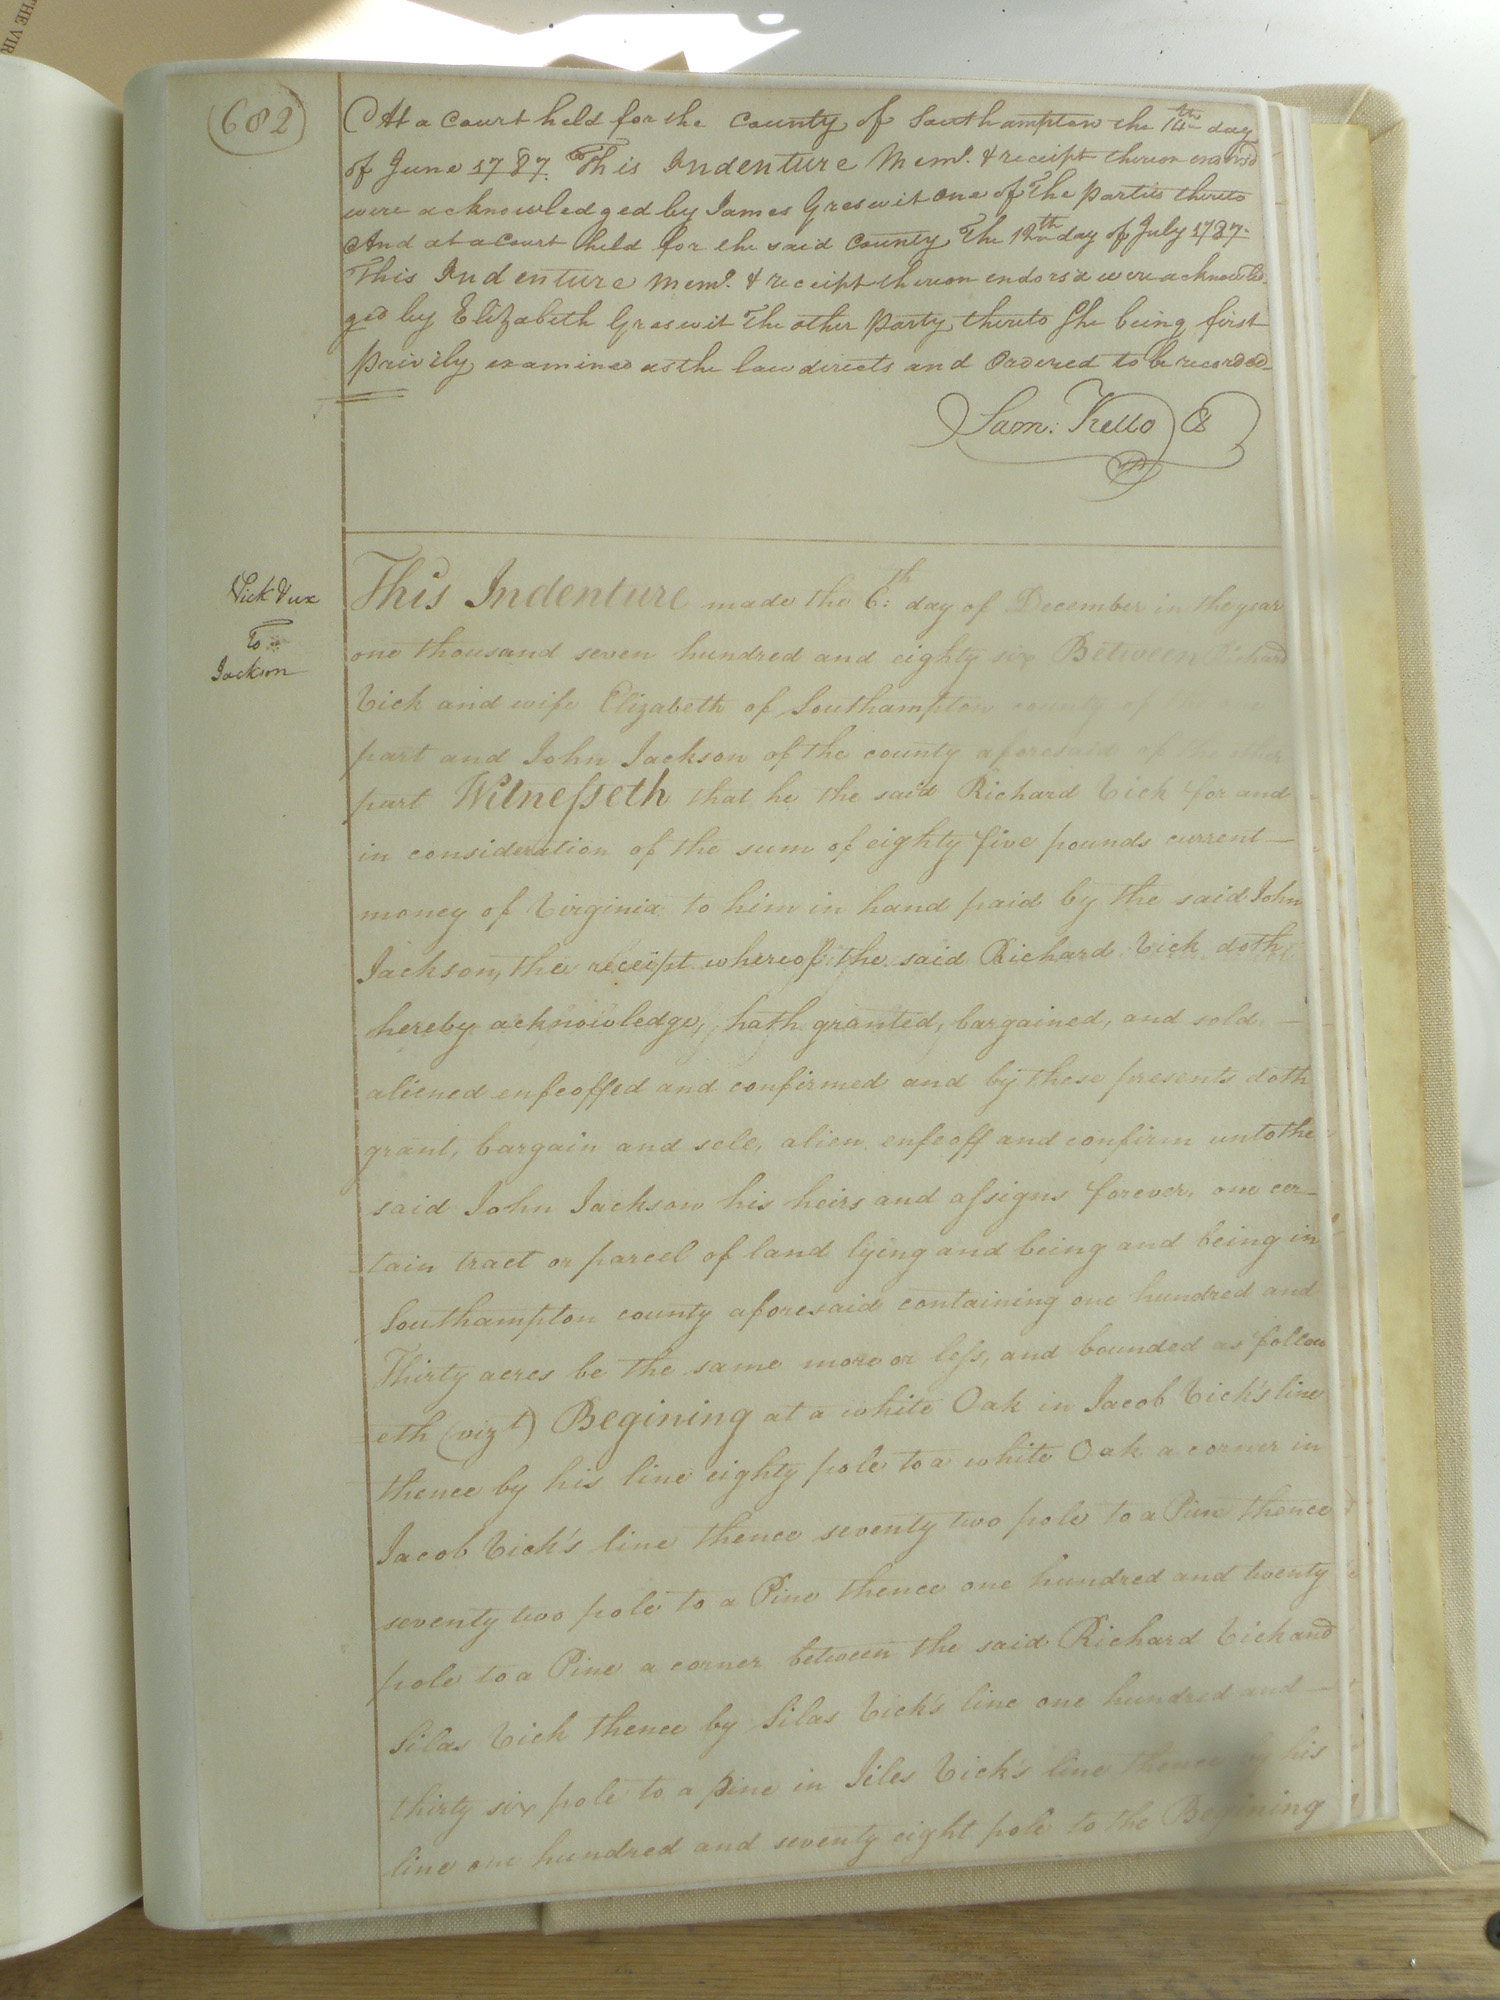 THE VIR
682
At a Court held for the County of Southampton the 14th day
of June 1787. This Indenture Mem.o & receipt thereon endors'd
were acknowledged by James Greswit One of The Parties thereto
And at a Court held for the said County The 12th day of July 1787.
This Indenture Mem.o & receipt thereon endors'd were acknowled-
ged by Elizabeth Greswit The other Party thereto She being first
Privily examined as the law directs and Ordered to be recorded_
Sam: Kello C
Vick & ux
To
Jackson
This Indenture made the 6:th day of December in the year
one thousand seven hundred and eighty six Between Richard
Vick and wife Elizabeth of Southampton county of the one
part and John Jackson of the county aforesaid of the other
part Witnesseth that he the said Richard Vick for and
in consideration of the sum of eighty five pounds current—
money of Virginia to him in hand paid by the said John
Jackson, the receipt whereof the said Richard Vick doth
hereby acknowledge, hath granted, bargained, and sold, —
aliened enfeoffed and confirmed and by these presents doth
grant, bargain and sell, alien enfeoff and confirm unto the
said John Jackson his heirs and assigns forever, one cer-
tain tract or parcel of land lying and being and being in
Southampton county aforesaid containing one hundred and
Thirty acres be the same more or less, and bounded as follow
eth (vizt) Begining at a white Oak in Jacob Vick's line
thence by his line eighty pole to a white Oak a corner in
Jacob Vick's line thence seventy two pole to a Pine thence
seventy two pole to a Pine thence one hundred and twenty
pole to a Pine a corner between the said Richard Vick and
Silas Vick thence by Silas Vick's line one hundred and —
thirty six pole to a pine in Jiles Vick's line thence by his
line one hundred and seventy eight pole to the Begining